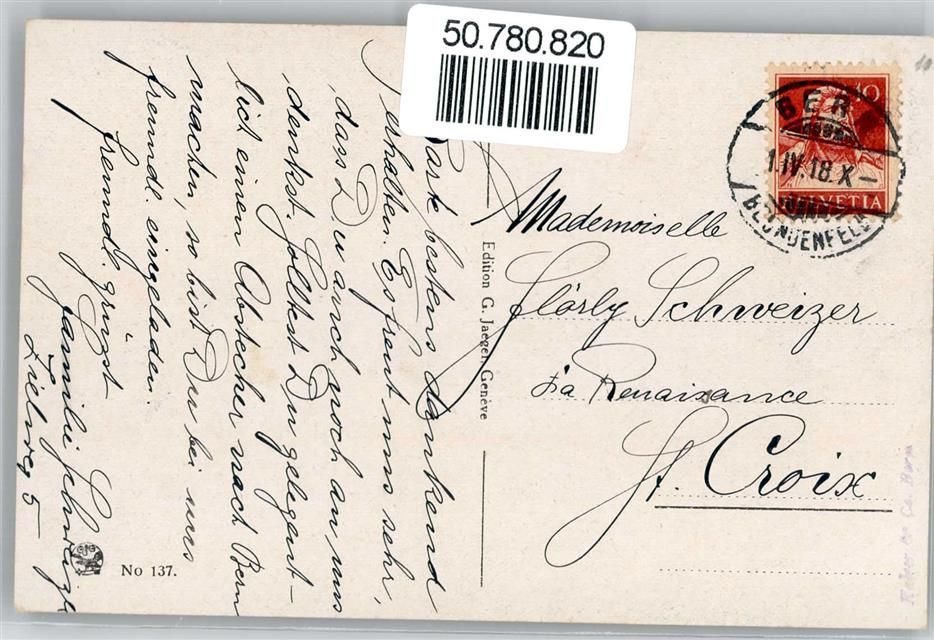 50.780.820
Karte bestens dankend
erhalten. Es freut uns sehr,
dass Du auch noch an uns
denkst. Solltest Du gelegent-
lich einen Abstecher nach Bern
machen, so bist Du bei uns
freundl. eingeladen.
Freundl. grüsst
Familie Schweizer
Zielweg 5
No 137.
Edition G. Jaeger, Genève
10
HELVETIA
BERN
1.IV.18.X-
Mademoiselle
Flörly Schweizer
Renaissance
St. Croix
& Co. Bern